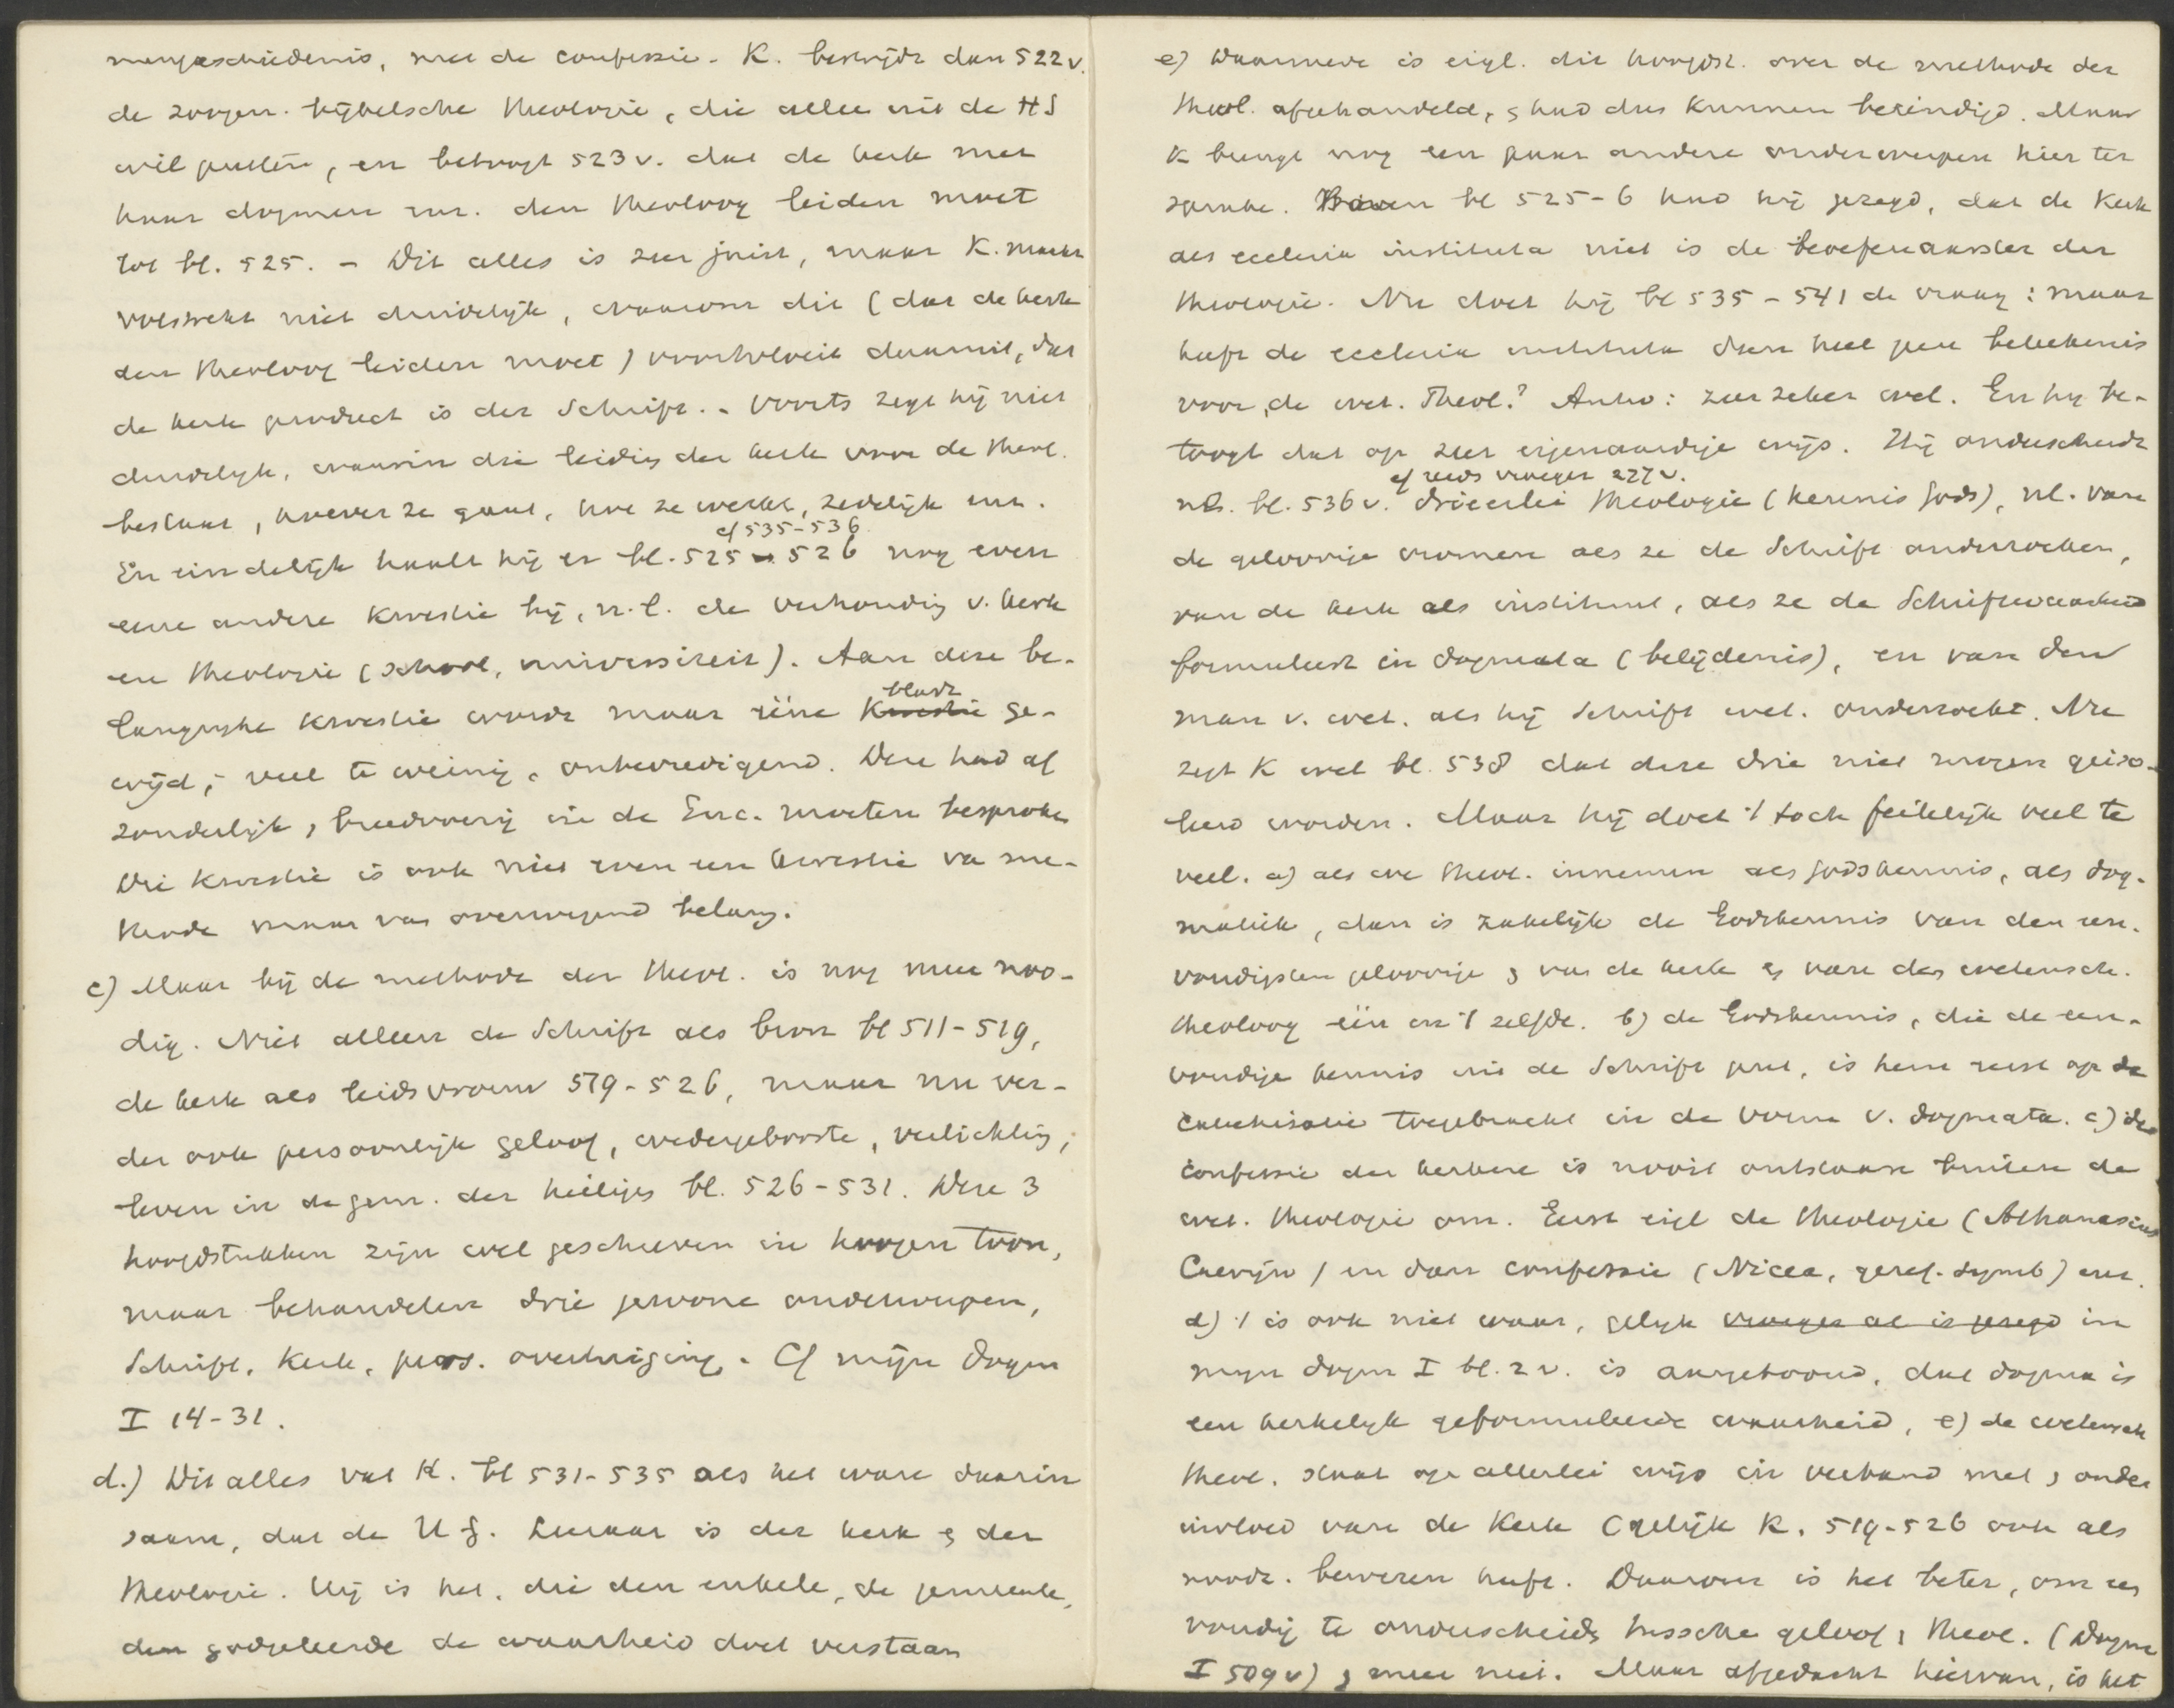 mengeschiedenis, met de confessie. K. bestrijdt dan 522 v.
de zoogen. bijbelsche theologie, die alleen uit de HS
wil putten, en betoogt 523 v. dat de kerk met
haar dogmen enz. den theoloog leiden moet
tot bl. 525. – Dit alles is zeer juist, maar K. maakt
volstrekt niet duidelijk, waarom dit (dat de kerk
den theoloog leiden moet) voortvloeit daaruit, dat
de kerk product is der Schrift. – Voorts zegt hij niet
duidelijk, waarin die leiding der kerk voor de theol.
bestaat, hoever ze gaat, hoe ze werkt, zedelijk enz.
cf 535-536
En eindelijk haalt hij er bl. 525-526 nog even
eene andere kwestie bij, n.l. de verhouding v. kerk
en theologie (school, universiteit). Aan deze be-
bladz
langrijke kwestie wordt maar ééne kwestie ge-
wijd; veel te weinig, onbevredigend. Deze had af
zonderlijk, breedvoerig in de Enc. moeten besproken
Die kwestie is ook niet even een kwestie va me-
thode maar van overwegend belang.
c) Maar bij de methode der theol. is nog meer noo-
dig. Niet alleen de Schrift als bron bl 511-519,
de kerk als leidsvrouw 519-526, maar nu ver-
der ook persoonlijk geloof, wedergeboorte, verlichting,
leven in de gem. der heiligen bl. 526-531. Deze 3
hoofdstukken zijn wel geschreven in hoogen toon,
maar behandelen drie gewone onderwerpen,
Schrift, Kerk, pers. overtuiging. Cf mijn Dogm
I 14-31.
d.) Dit alles vat K. bl 531-535 als het ware daarin
saam, dat de H G. Leeraar is der kerk en der
theologie. Hij is het, die den enkele, de gemeente,
den godgeleerde de waarheid doet verstaan
e) Daarmede is eigl. dit hoofdst. over de methode der
theol. afgehandeld, en had dus kunnen beëindigd. Maar
K brengt nog een paar andere onderwerpen hier ter
sprake. Boven bl 525-6 had hij gezegd, dat de Kerk
als ecclesia instituta niet is de beoefenaarster der
theologie. Nu doet hij bl 535-541 de vraag: maar
heeft de ecclesia instituta dan heel geen beteekenis
voor de wet. Theol.? Antw: zeer zeker wel. En hij be-
toogt dat op zeer eigenaardige wijs. Hij onderscheidt
cf reeds vroeger 227 v.
nl. bl. 536 v. drieerlei theologie (kennis Gods), nl. van
de geloovige vromen als ze de Schrift onderzoeken,
van de kerk als instituut, als ze de Schriftwaarheid
formuleert in dogmata (belijdenis), en van den
man v. wet. als hij Schrift wet. onderzoekt. Nu
zegt K wel bl. 538 dat deze drie niet mogen geïso-
leerd worden. Maar hij doet 't toch feitelijk veel te
veel. a) als we theol. innemen als godskennis, als dog-
matiek, dan is zakelijk de Godskennis van den een-
voudigsten geloovige en van de kerk en van den wetensch.
theoloog één en 't zelfde. b) de Godskennis, die de een-
voudige kennis uit de Schrift put, is hem eerst op de
catechisatie toegebracht in de vorm v. dogmata. c) de
confessie der kerken is nooit ontstaan buiten de
wet. theologie om. Eerst eigl de theologie (Athanasius
Calvijn) en dan confessie (Nicea, geref. symb) enz.
d) 't is ook niet waar, gelijk vroeger al is gezegd in
mijn dogm I bl. 2 v. is aangetoond, dat dogma is
een kerkelijk geformuleerde waarheid, e) de wetensch
theol. staat op allerlei wijs in verband met en onder
invloed van de Kerk (gelijk K. 519-526 ook als
noodz. bewezen heeft. Daarom is het beter, om een
voudig te onderscheiden tusschen geloof en theol. (Dogm
I 509 v) en meer niet. Maar afgedacht hiervan, is het